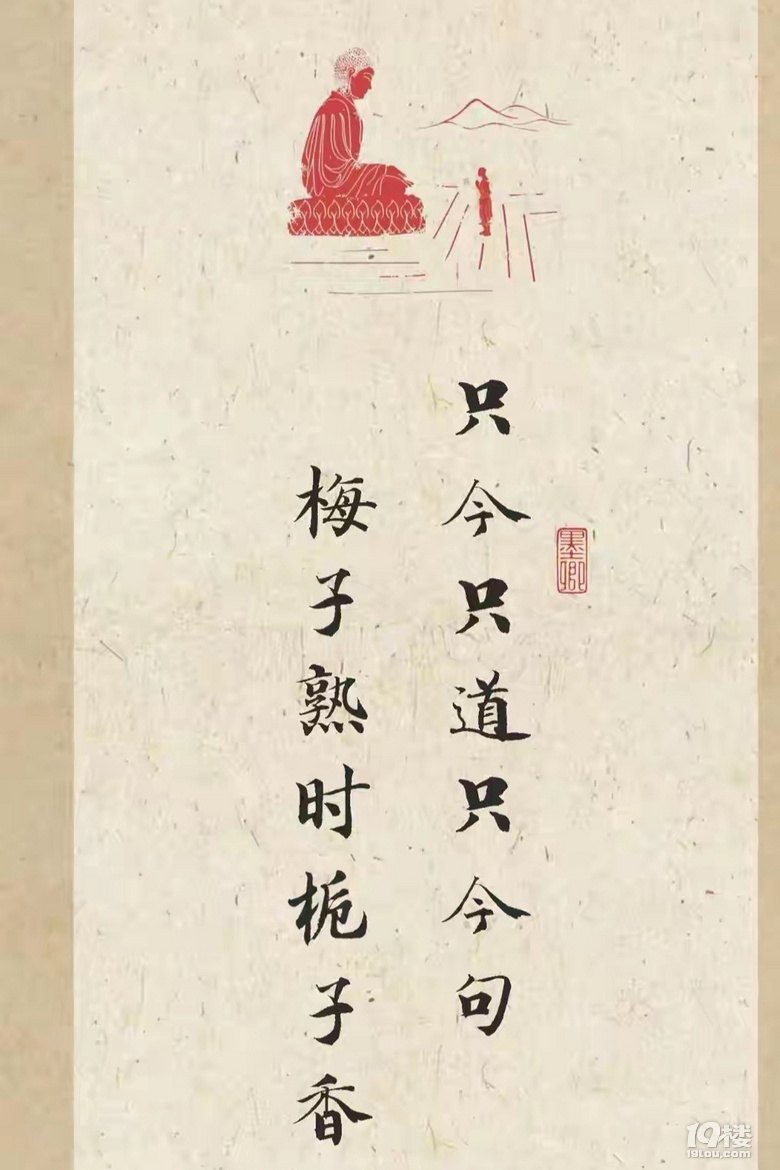 只今只道只今句
梅子熟时栀子香
墨卿
19楼
19lou.com